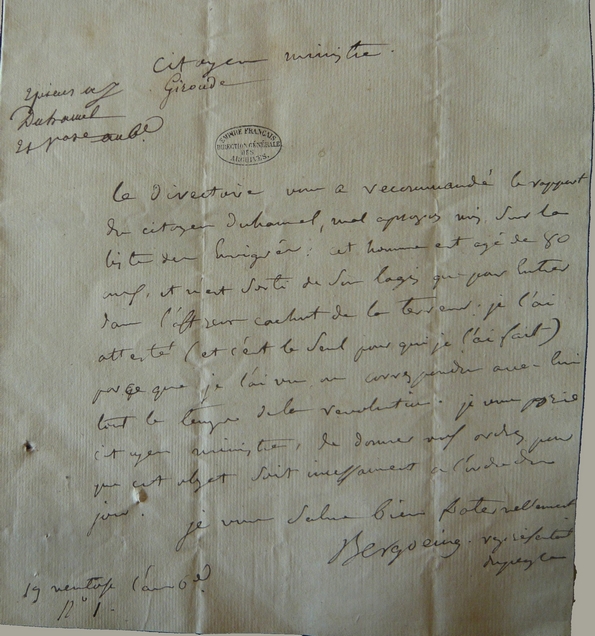 Citoyen ministre.
Gironde
Duhamel
EMPIRE FRANÇAIS
DIRECTION GÉNÉRALE
DES
ARCHIVES
le Directoire vous a recommandé le rapport
du citoyen Duhamel, mal apropos mis sur la
liste des Emigrés: cet homme est agé de 80
ans, et n'est sorti de son logis que pour entrer
dans l'affreux cachot de la terreur. je l'ai
attesté (et c'est le seul pour qui je l'ai fait)
parce que je l'ai vu ou correspondu avec lui
tout le temps de la revolution. je vous prie
citoyen ministre, de donner vos ordres pour
que cet objet soit incessament a l'ordre du
jour. je vous salue bien fraternellement
Bergoeing. représentant
du peuple
19 ventose l'an 6e
N° 1.